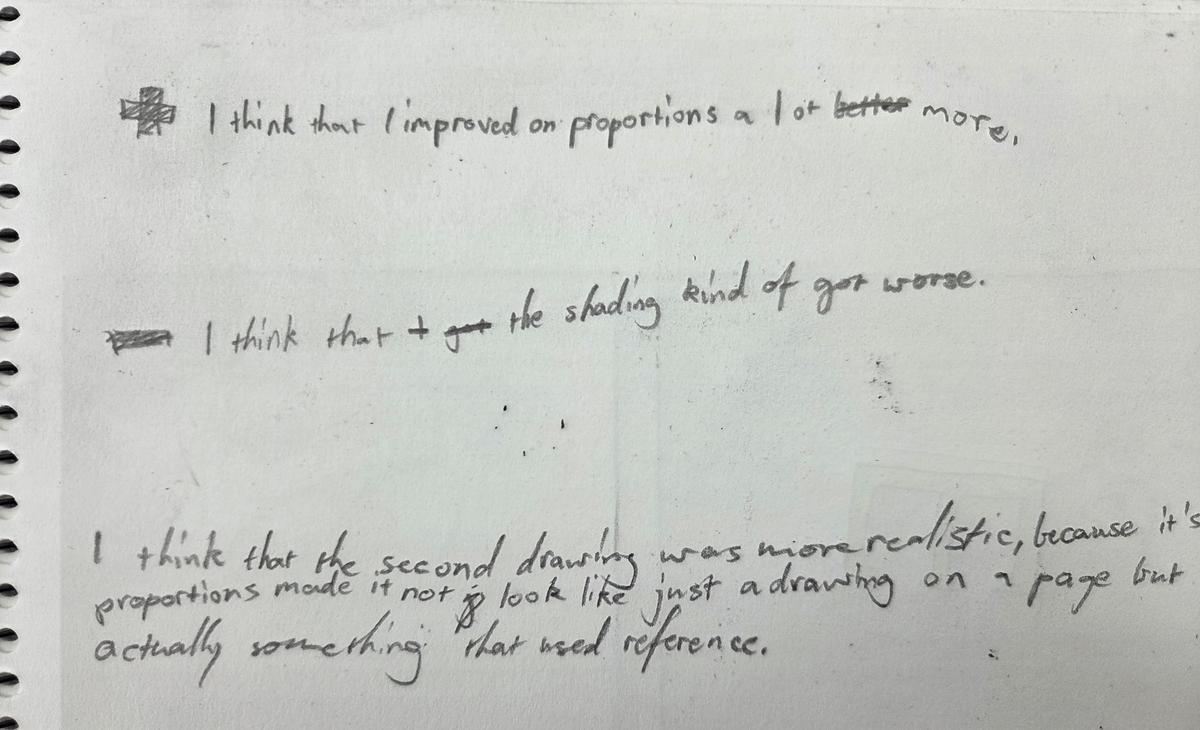 I think that I improved on proportions a lot better more.
I think that I got the shading kind of got worse.
I think that the second drawing was more realistic, because it's
proportions made it not look like just a drawing on a page but
actually something that used reference.